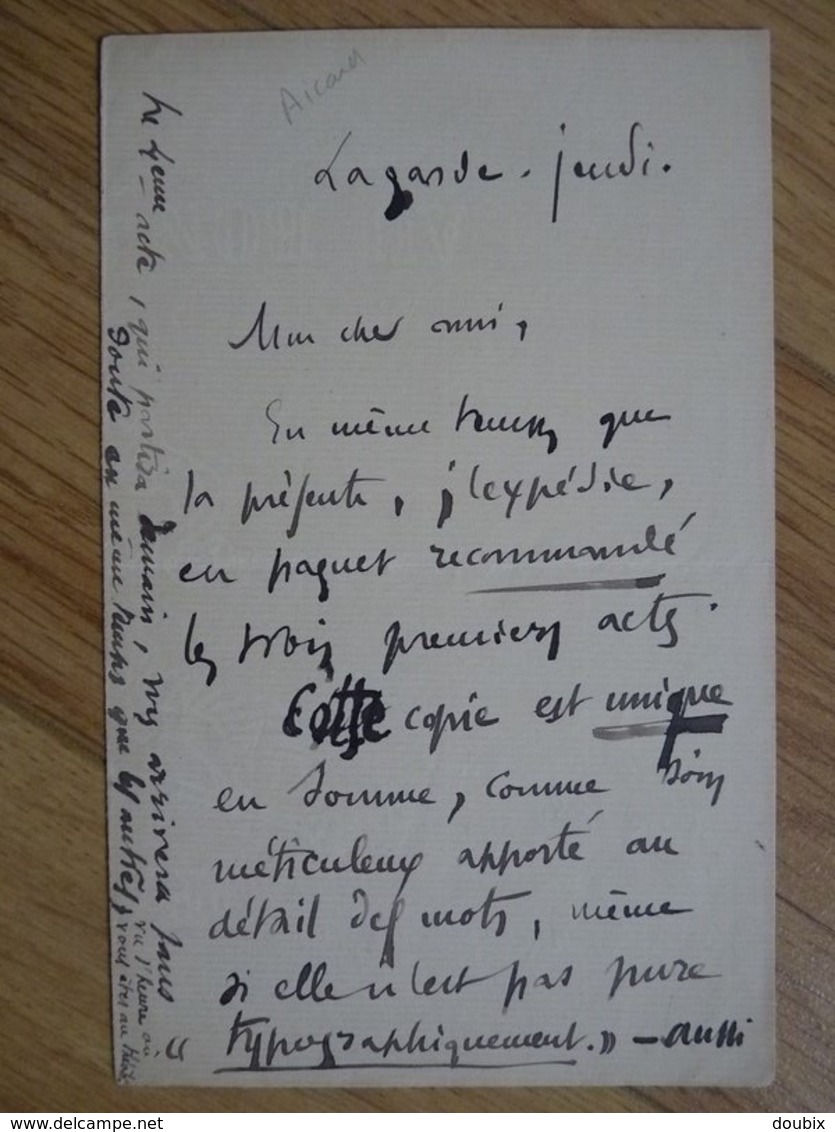 Aicard
Lagarde. jeudi.
Mon cher ami,
En même temps que
la présente, j'expédie,
en paquet recommandé
les trois premiers actes.
Cette copie est unique
en somme, comme soin
méticuleux apporté au
détail des mots, même
si elle n'est pas pure
« typographiquement. » — aussi
Le 4eme acte, qui partira demain, vs arrivera sans
doute en même temps que les autres, vu l'heure où
vous êtes au
delcampe.net
doubix